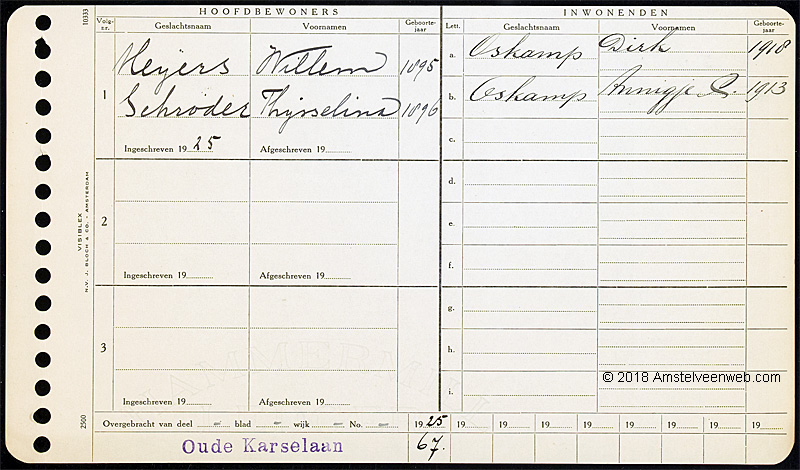 HOOFDBEWONERS
INWONENDEN
Volg-nr. Geslachtsnaam Voornamen Geboorte-jaar
Lett. Geslachtsnaam Voornamen Geboorte-jaar
1 Meijers Willem 1895
Schroder Thijsselina 1896
Ingeschreven 1925 Afgeschreven 19
a. Oskamp Dirk 1918
b. Oskamp Annigje 1913
c.
2
Ingeschreven 19 Afgeschreven 19
d.
e.
f.
3
Ingeschreven 19 Afgeschreven 19
g.
h.
i.
© 2018 Amstelveenweb.com
Overgebracht van deel – blad – wijk – No. – 1925 19 19 19 19 19 19 19 19
Oude Karselaan 67.
10333
VISIBLEX
N.V. J. BLOCH & CO. - AMSTERDAM
2500